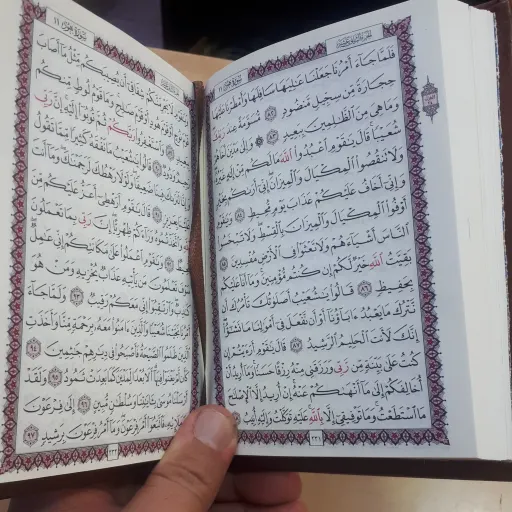 الجزء الثاني عشر
سورة هود ١١
فَلَمَّا جَآءَ أَمْرُنَا جَعَلْنَا عَٰلِيَهَا سَافِلَهَا وَأَمْطَرْنَا عَلَيْهَا
حِجَارَةً مِّن سِجِّيلٍ مَّنضُودٍ ٨٢ مُّسَوَّمَةً عِندَ رَبِّكَ
وَمَا هِيَ مِنَ ٱلظَّٰلِمِينَ بِبَعِيدٍ ٨٣ وَإِلَىٰ مَدْيَنَ أَخَاهُمْ
شُعَيْبًا قَالَ يَٰقَوْمِ ٱعْبُدُوا۟ ٱللَّهَ مَا لَكُم مِّنْ إِلَٰهٍ غَيْرُهُۥ
وَلَا تَنقُصُوا۟ ٱلْمِكْيَالَ وَٱلْمِيزَانَ إِنِّىٓ أَرَىٰكُم بِخَيْرٍ
وَإِنِّىٓ أَخَافُ عَلَيْكُمْ عَذَابَ يَوْمٍ مُّحِيطٍ ٨٤ وَيَٰقَوْمِ
أَوْفُوا۟ ٱلْمِكْيَالَ وَٱلْمِيزَانَ بِٱلْقِسْطِ وَلَا تَبْخَسُوا۟
ٱلنَّاسَ أَشْيَآءَهُمْ وَلَا تَعْثَوْا۟ فِى ٱلْأَرْضِ مُفْسِدِينَ ٨٥
بَقِيَّتُ ٱللَّهِ خَيْرٌ لَّكُمْ إِن كُنتُم مُّؤْمِنِينَ وَمَآ أَنَا۠ عَلَيْكُم
بِحَفِيظٍ ٨٦ قَالُوا۟ يَٰشُعَيْبُ أَصَلَوٰتُكَ تَأْمُرُكَ أَن
نَّتْرُكَ مَا يَعْبُدُ ءَابَآؤُنَآ أَوْ أَن نَّفْعَلَ فِىٓ أَمْوَٰلِنَا مَا نَشَٰٓؤُا۟
إِنَّكَ لَأَنتَ ٱلْحَلِيمُ ٱلرَّشِيدُ ٨٧ قَالَ يَٰقَوْمِ أَرَءَيْتُمْ إِن
كُنتُ عَلَىٰ بَيِّنَةٍ مِّن رَّبِّى وَرَزَقَنِى مِنْهُ رِزْقًا حَسَنًا وَمَآ أُرِيدُ أَنْ
أُخَالِفَكُمْ إِلَىٰ مَآ أَنْهَىٰكُمْ عَنْهُ إِنْ أُرِيدُ إِلَّا ٱلْإِصْلَٰحَ
مَا ٱسْتَطَعْتُ وَمَا تَوْفِيقِىٓ إِلَّا بِٱللَّهِ عَلَيْهِ تَوَكَّلْتُ وَإِلَيْهِ أُنِيبُ
٢٣١
سورة هود ١١
وَيَٰقَوْمِ لَا يَجْرِمَنَّكُمْ شِقَاقِىٓ أَن يُصِيبَكُم مِّثْلُ مَآ أَصَابَ
قَوْمَ نُوحٍ أَوْ قَوْمَ هُودٍ أَوْ قَوْمَ صَٰلِحٍ وَمَا قَوْمُ لُوطٍ مِّنكُم
بِبَعِيدٍ ٨٩ وَٱسْتَغْفِرُوا۟ رَبَّكُمْ ثُمَّ تُوبُوٓا۟ إِلَيْهِ إِنَّ رَبِّى
رَحِيمٌ وَدُودٌ ٩٠ قَالُوا۟ يَٰشُعَيْبُ مَا نَفْقَهُ كَثِيرًا مِّمَّا تَقُولُ
وَإِنَّا لَنَرَىٰكَ فِينَا ضَعِيفًا وَلَوْلَا رَهْطُكَ لَرَجَمْنَٰكَ وَمَآ أَنتَ
عَلَيْنَا بِعَزِيزٍ ٩١ قَالَ يَٰقَوْمِ أَرَهْطِىٓ أَعَزُّ عَلَيْكُم مِّنَ
ٱللَّهِ وَٱتَّخَذْتُمُوهُ وَرَآءَكُمْ ظِهْرِيًّا إِنَّ رَبِّى بِمَا تَعْمَلُونَ
مُحِيطٌ ٩٢ وَيَٰقَوْمِ ٱعْمَلُوا۟ عَلَىٰ مَكَانَتِكُمْ إِنِّى عَٰمِلٌ
سَوْفَ تَعْلَمُونَ مَن يَأْتِيهِ عَذَابٌ يُخْزِيهِ وَمَنْ هُوَ
كَٰذِبٌ وَٱرْتَقِبُوٓا۟ إِنِّى مَعَكُمْ رَقِيبٌ ٩٣ وَلَمَّا جَآءَ
أَمْرُنَا نَجَّيْنَا شُعَيْبًا وَٱلَّذِينَ ءَامَنُوا۟ مَعَهُۥ بِرَحْمَةٍ مِّنَّا وَأَخَذَتِ
ٱلَّذِينَ ظَلَمُوا۟ ٱلصَّيْحَةُ فَأَصْبَحُوا۟ فِى دِيَٰرِهِمْ جَٰثِمِينَ ٩٤
كَأَن لَّمْ يَغْنَوْا۟ فِيهَآ أَلَا بُعْدًا لِّمَدْيَنَ كَمَا بَعِدَتْ ثَمُودُ ٩٥ وَلَقَدْ
أَرْسَلْنَا مُوسَىٰ بِـَٔايَٰتِنَا وَسُلْطَٰنٍ مُّبِينٍ ٩٦ إِلَىٰ فِرْعَوْنَ
وَمَلَإِي۟هِۦ فَٱتَّبَعُوٓا۟ أَمْرَ فِرْعَوْنَ وَمَآ أَمْرُ فِرْعَوْنَ بِرَشِيدٍ ٩٧
٢٣٢